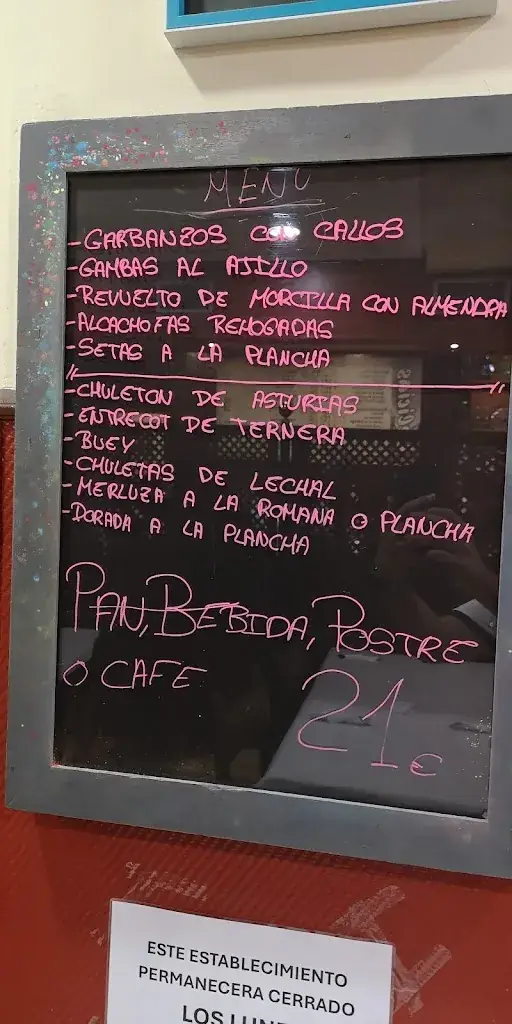 MENU
-GARBANZOS CON CALLOS
-GAMBAS AL AJILLO
-REVUELTO DE MORCILLA CON ALMENDRA
-ALCACHOFAS REHOGADAS
-SETAS A LA PLANCHA
-CHULETON DE ASTURIAS
-ENTRECOT DE TERNERA
-BUEY
-CHULETAS DE LECHAL
-MERLUZA A LA ROMANA O PLANCHA
-DORADA A LA PLANCHA
PAN, BEBIDA, POSTRE
O CAFE 21€
ESTE ESTABLECIMIENTO
PERMANECERA CERRADO
LOS